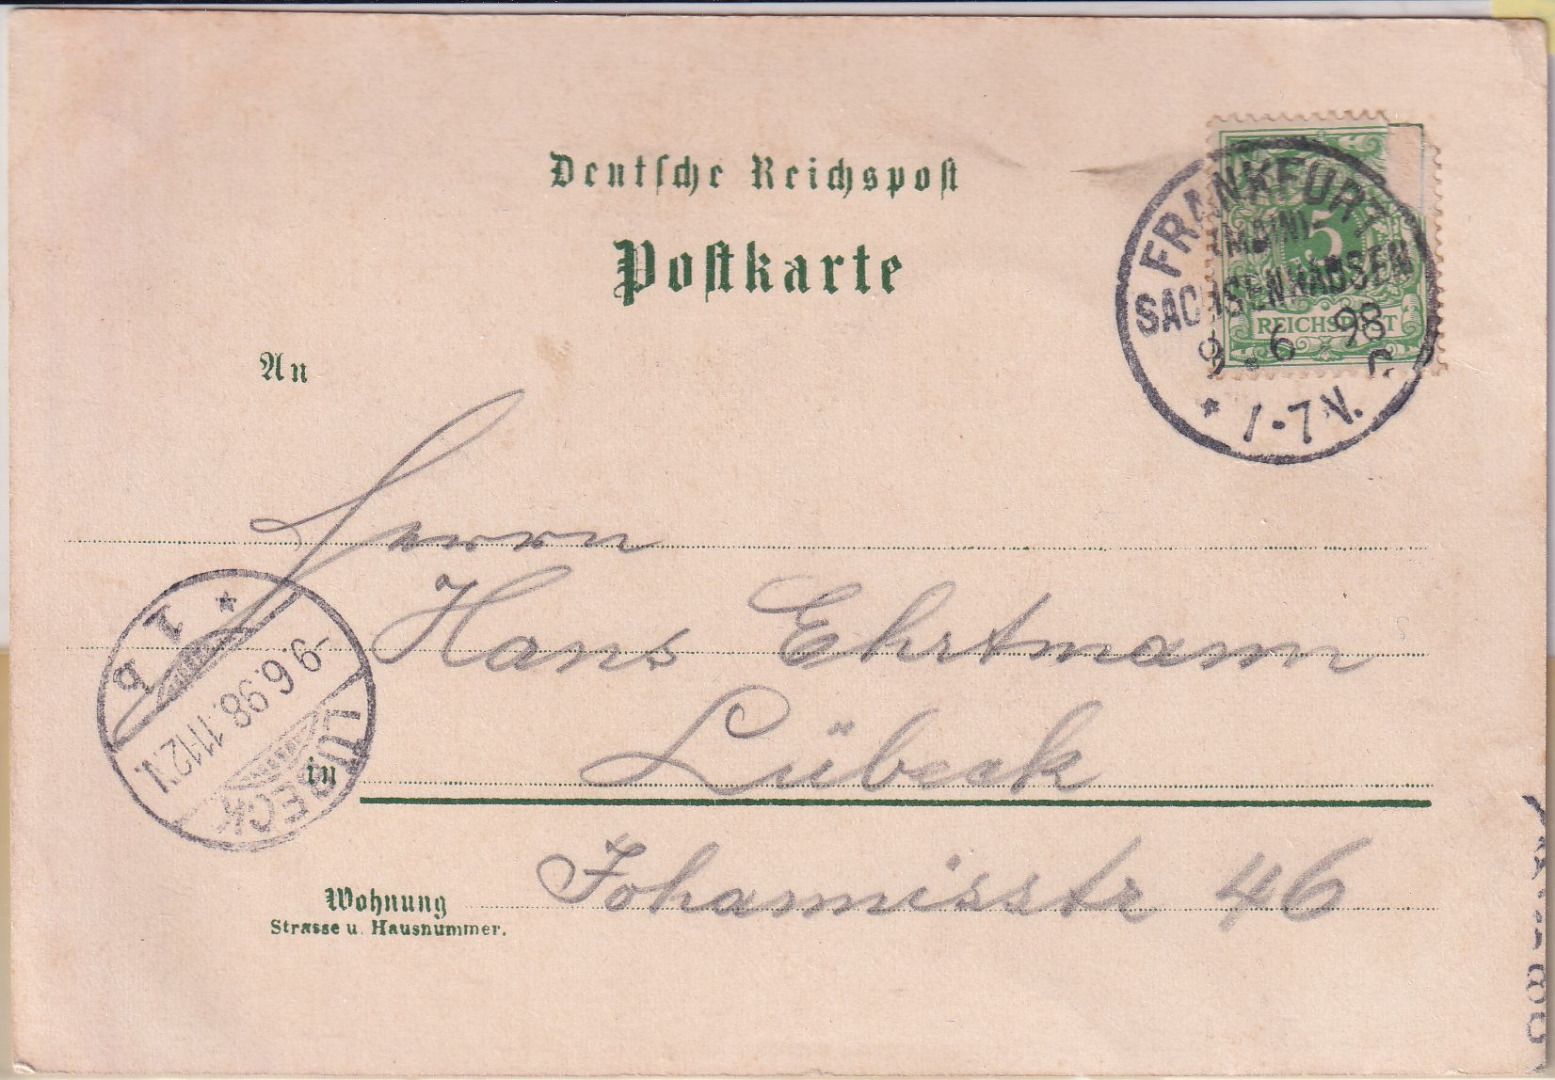 Deutsche Reichspost
Postkarte
FRANKFURT
(MAIN)-
SACHSENHAUSEN
9. 6. 98
* 1-7V. C.
5
REICHSPOST
An
Herrn
Hans Ehrtmann
in Lübeck
Wohnung
Strasse u. Hausnummer.
Johannisstr 46
LÜBECK
-9.6.98.11-12.N.
* 1 b